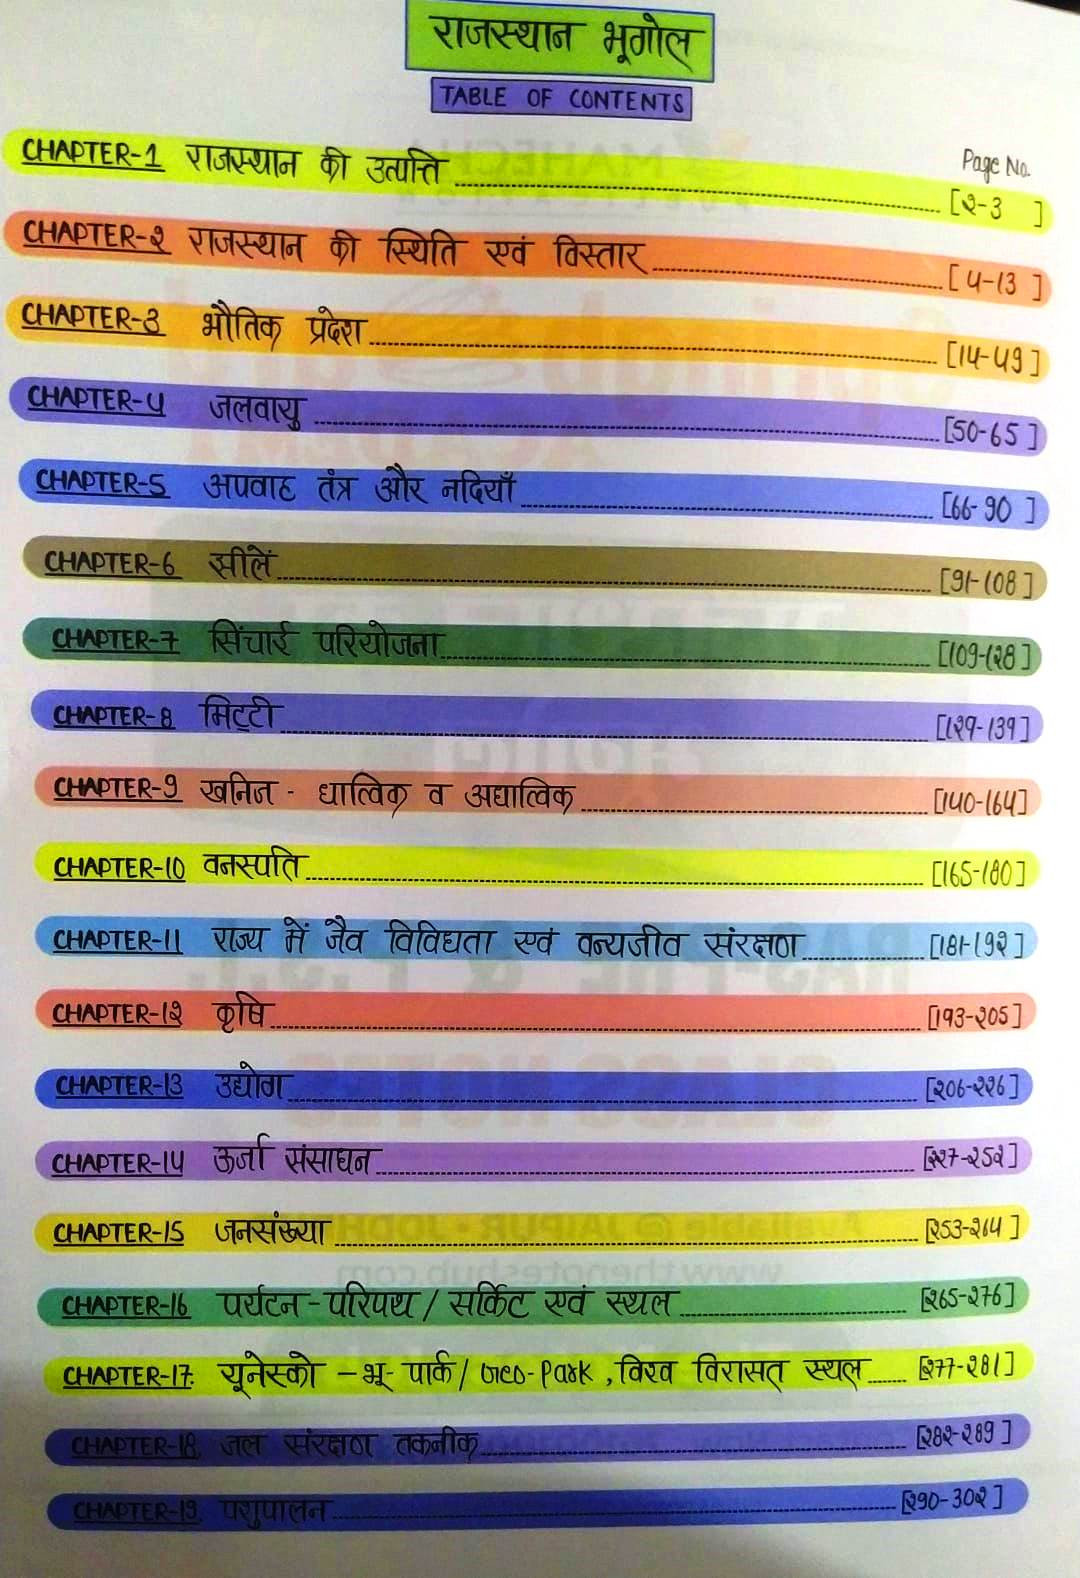 राजस्थान भूगोल
TABLE OF CONTENTS
Page No.
CHAPTER-1 राजस्थान की उत्पत्ति [2-3 ]
CHAPTER-2 राजस्थान की स्थिति एवं विस्तार [ 4-13 ]
CHAPTER-3 भौतिक प्रदेश [14-49]
CHAPTER-4 जलवायु [50-65]
CHAPTER-5 अपवाह तंत्र और नदियाँ [66-90 ]
CHAPTER-6 झीलें [91-108]
CHAPTER-7 सिंचाई परियोजना [109-128]
CHAPTER-8 मिट्टी [129-139]
CHAPTER-9 खनिज - धात्विक व अधात्विक [140-164]
CHAPTER-10 वनस्पति [165-180]
CHAPTER-11 राज्य में जैव विविधता एवं वन्यजीव संरक्षण [181-192]
CHAPTER-12 कृषि [193-205]
CHAPTER-13 उद्योग [206-226]
CHAPTER-14 ऊर्जा संसाधन [227-252]
CHAPTER-15 जनसंख्या [253-264]
CHAPTER-16 पर्यटन - परिपथ / सर्किट एवं स्थल [265-276]
CHAPTER-17. यूनेस्को - भू- पार्क / Geo-Park , विश्व विरासत् स्थल [277-281]
CHAPTER-18. जल संरक्षण तकनीक [282-289]
CHAPTER-19. पशुपालन [290-302]